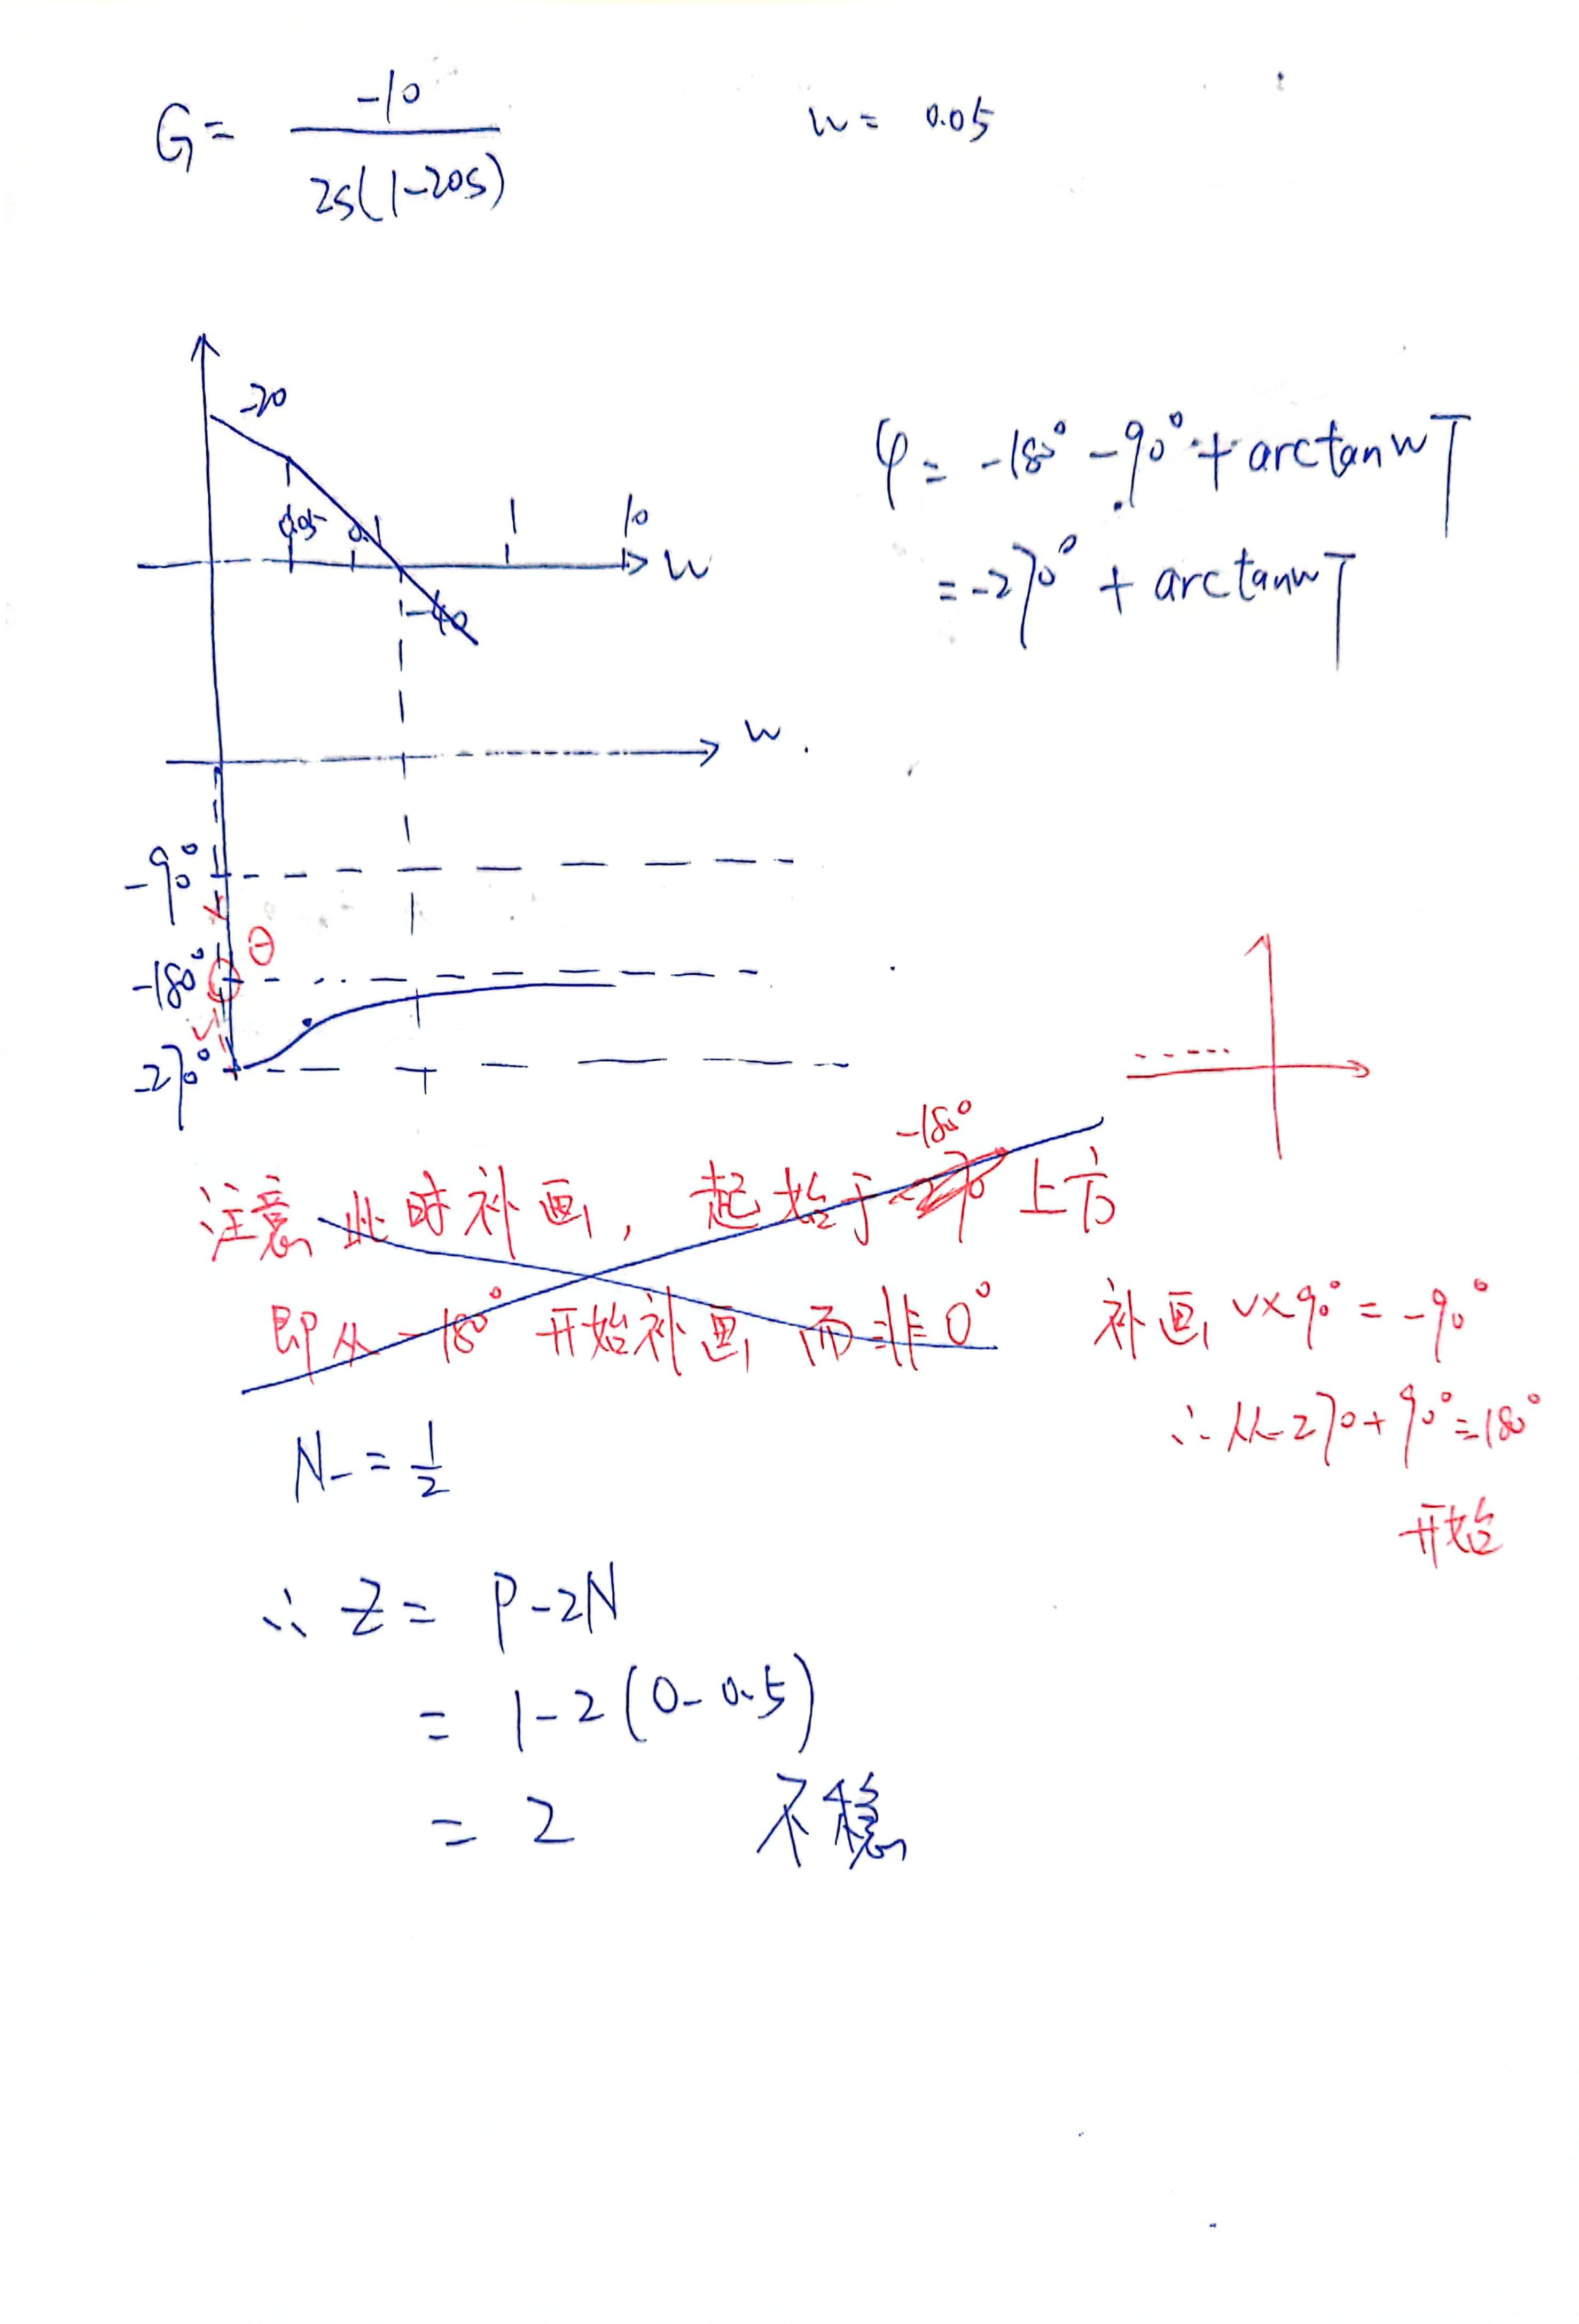 G = -10 / 2s(1-20s)
w = 0.05
-20
0.05 0.1 1 10
w
-40
φ = -180° - 90° + arctanwT
= -270° + arctanwT
w
-90°
-180° ⊖
-270°
-180°
注意此时补画, 起始于 上方
即从 -180° 开始补画 而非0°
补画 v×90° = -90°
∴从-270+90°=180°
开始
N- = 1/2
∴ Z = P-2N
= 1-2(0-0.5)
= 2 不稳